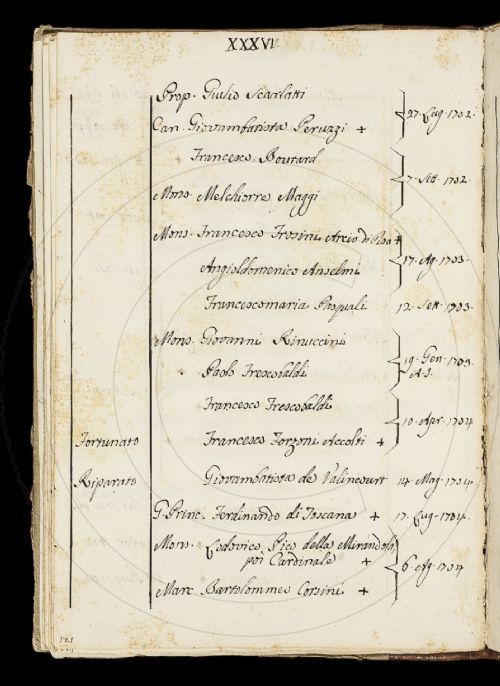 XXXVI
Prop. Giulio Scarlatti
Can. Giovambatista Peruzzi + 27. Lug. 1702.
+ Francesco Boutard
Mons. Melchiorre Maggi 7. Sett. 1702.
Mons. Francesco Frosini Arcio di Pisa +
Angioldomenico Anselmi 17. Ag. 1703.
Francescomaria Pasquali 12. Sett. 1703.
Mons. Giovanni Rinuccini
Paolo Frescobaldi 19. Gen. 1703. A.I.
Francesco Frescobaldi
Fortunato Francesco Forzoni Accolti + 10. Apr. 1704
Riparato Giovambatista de Valincourt 14. Mag. 1704.
G. Princ. Ferdinando di Toscana + 17. Lug. 1704.
Mons. Lodovico Pico della Mirandola
poi Cardinale + 6. Ag. 1704
Marc. Bartolommeo Corsini +